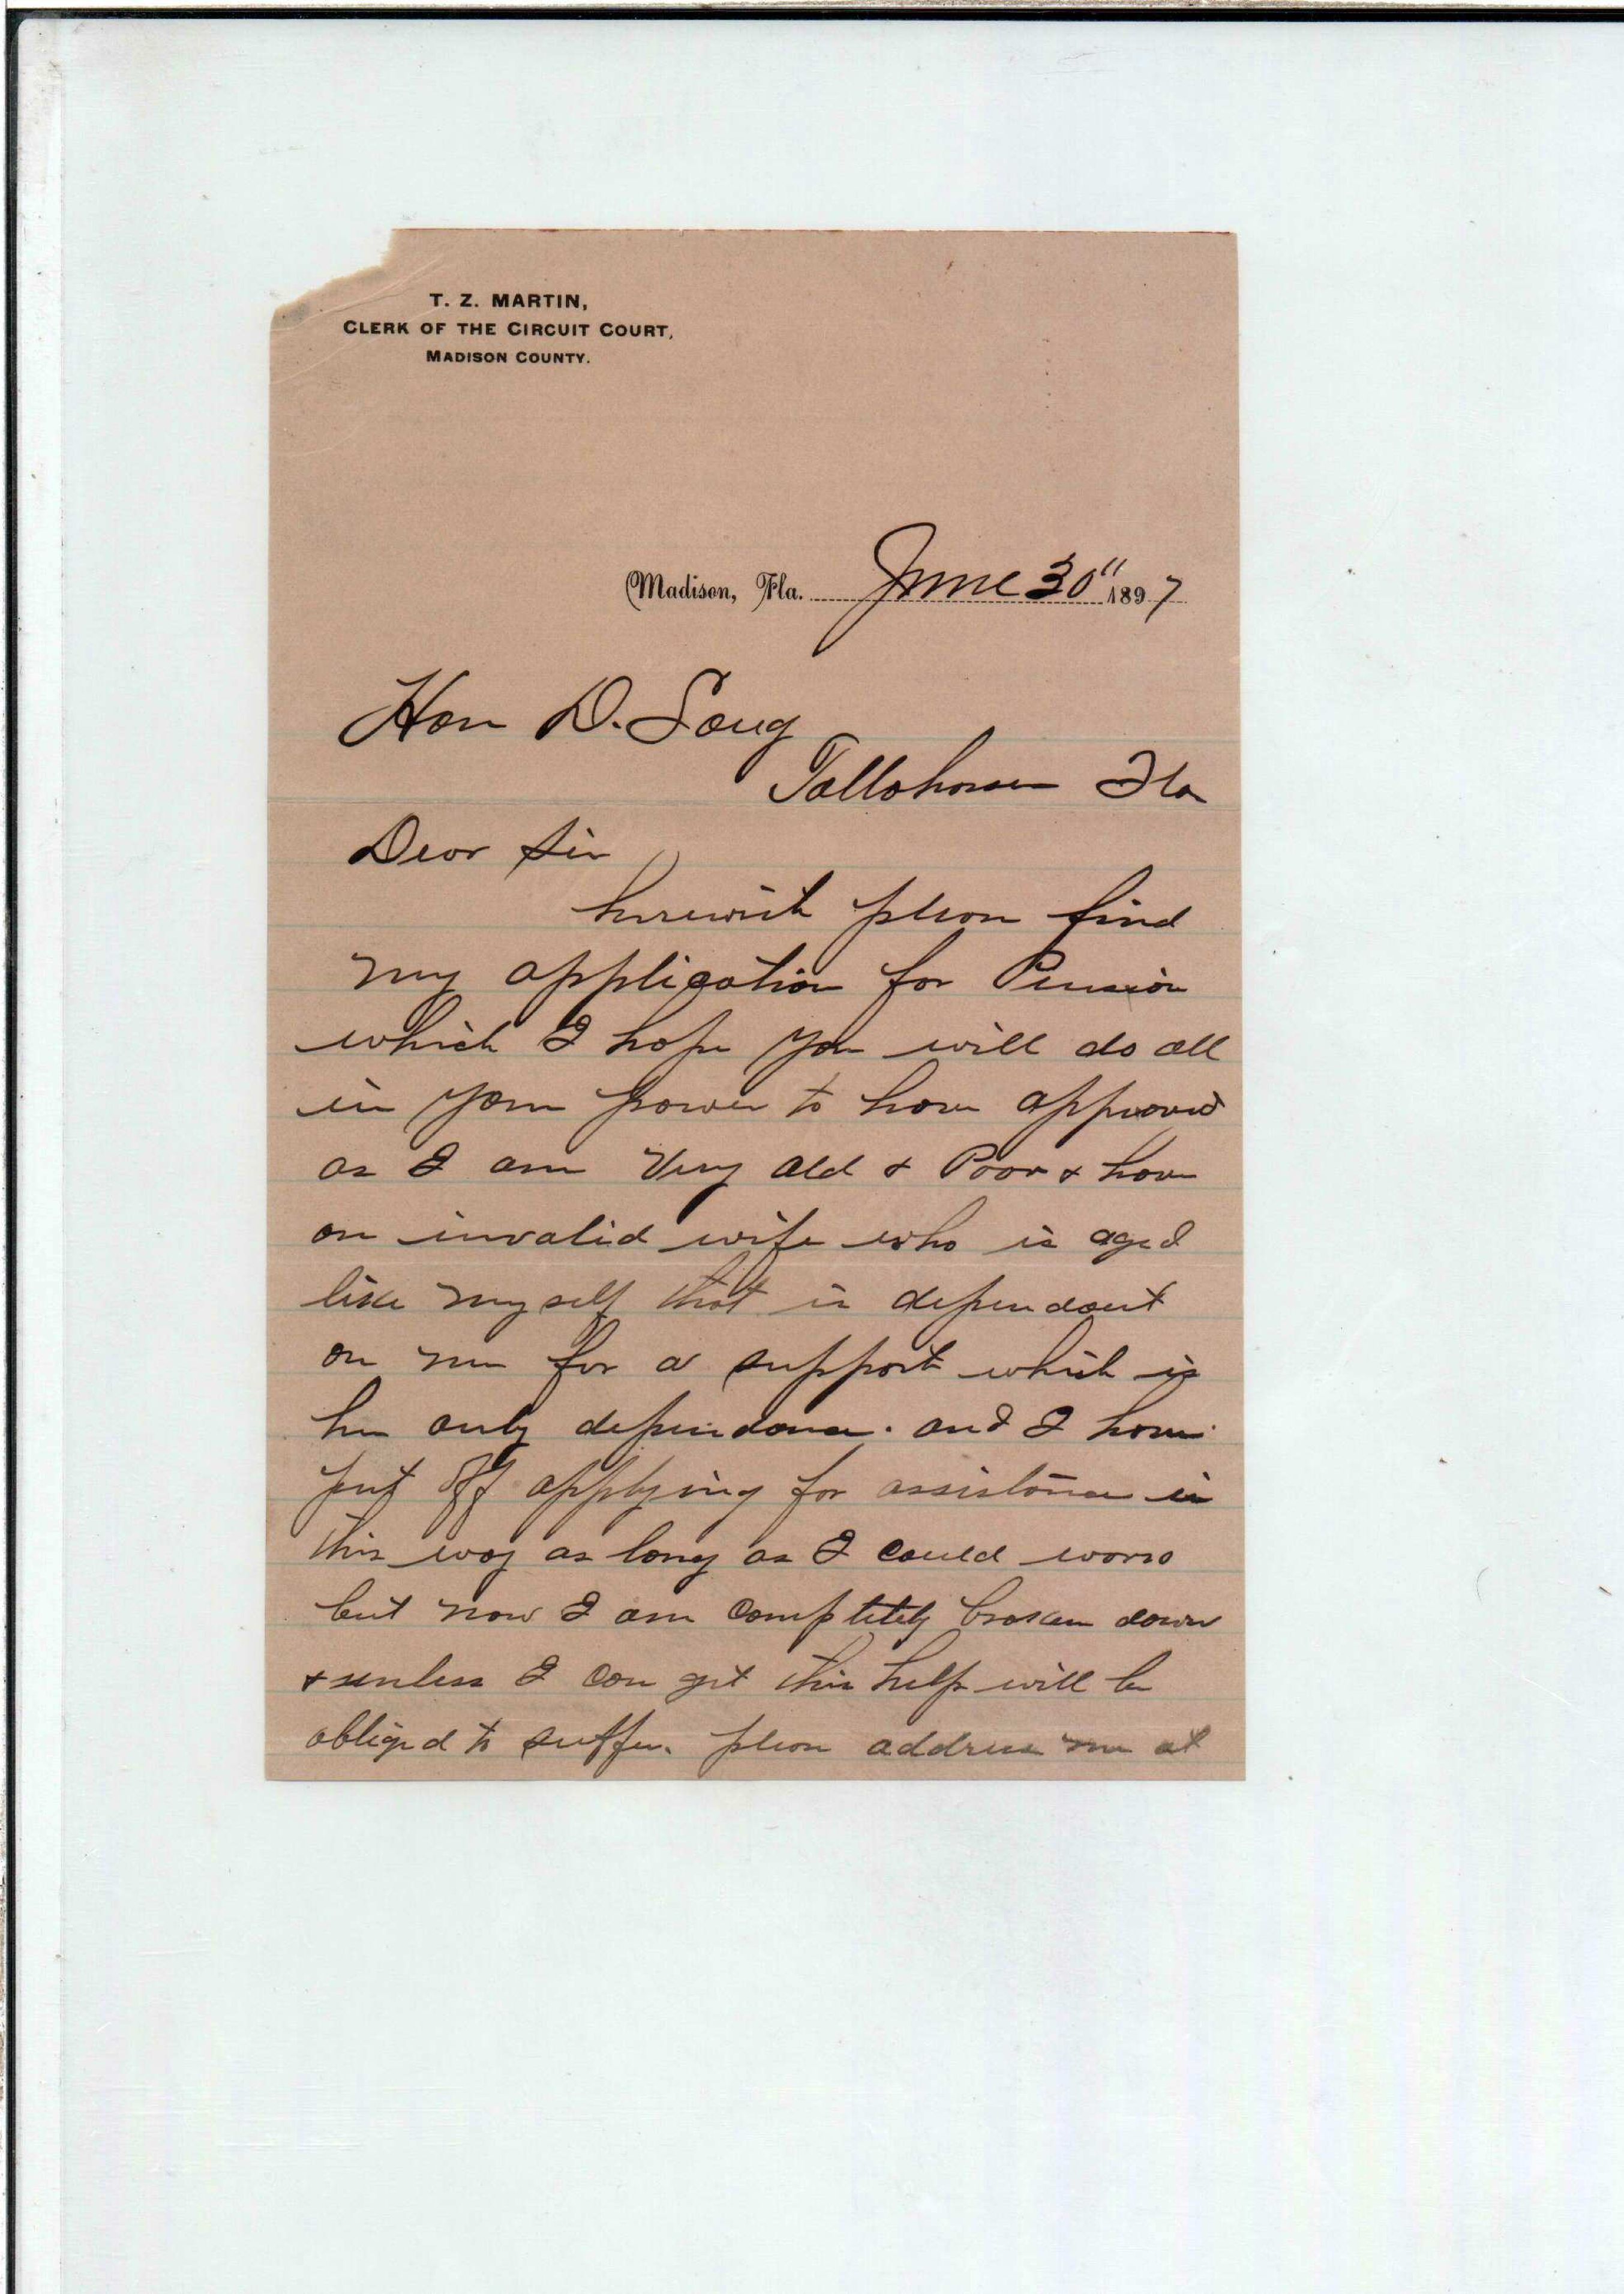 T. Z. MARTIN,
CLERK OF THE CIRCUIT COURT,
MADISON COUNTY.
Madison, Fla. June 30" 1897
Hon D. Lang
Tallahassee Fla
Dear Sir
herewith please find
my application for Pension
which I hope you will do all
in your power to have approved
as I am Very old & Poor & have
an invalid wife who is aged
like myself that is dependant
on me for a support which is
her only dependance. and I have
put off applying for assistance in
this way as long as I could work
but now I am completely broken down
& unless I can get this help will be
obliged to suffer. please address me at